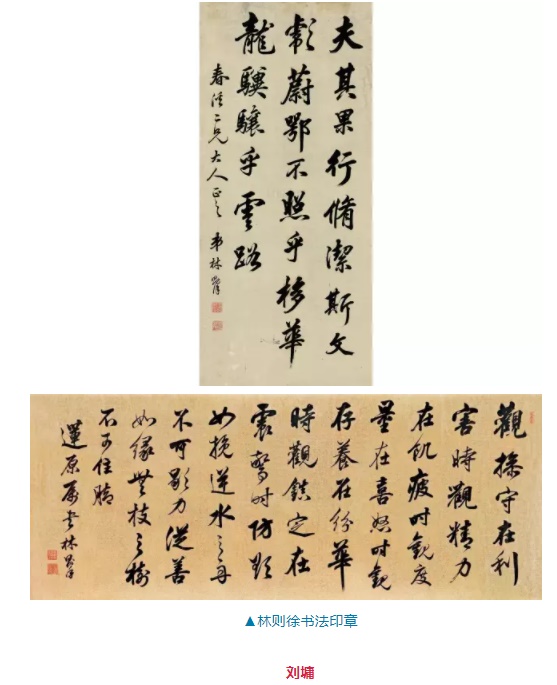 夫其果行脩潔斯文
彪蔚鄂不照乎栘華
龍驥驤乎雲路
二兄大人正之 弟林則徐
觀操守在利
害時觀精力
在飢疲時觀度
量在喜怒時觀
存養在紛華
時觀鎮定在
震驚時防欲
如挽逆水之舟
不可歇力從善
如緣無枝之樹
不可住腳
蓮原屬書林則徐
▲林则徐书法印章
刘墉